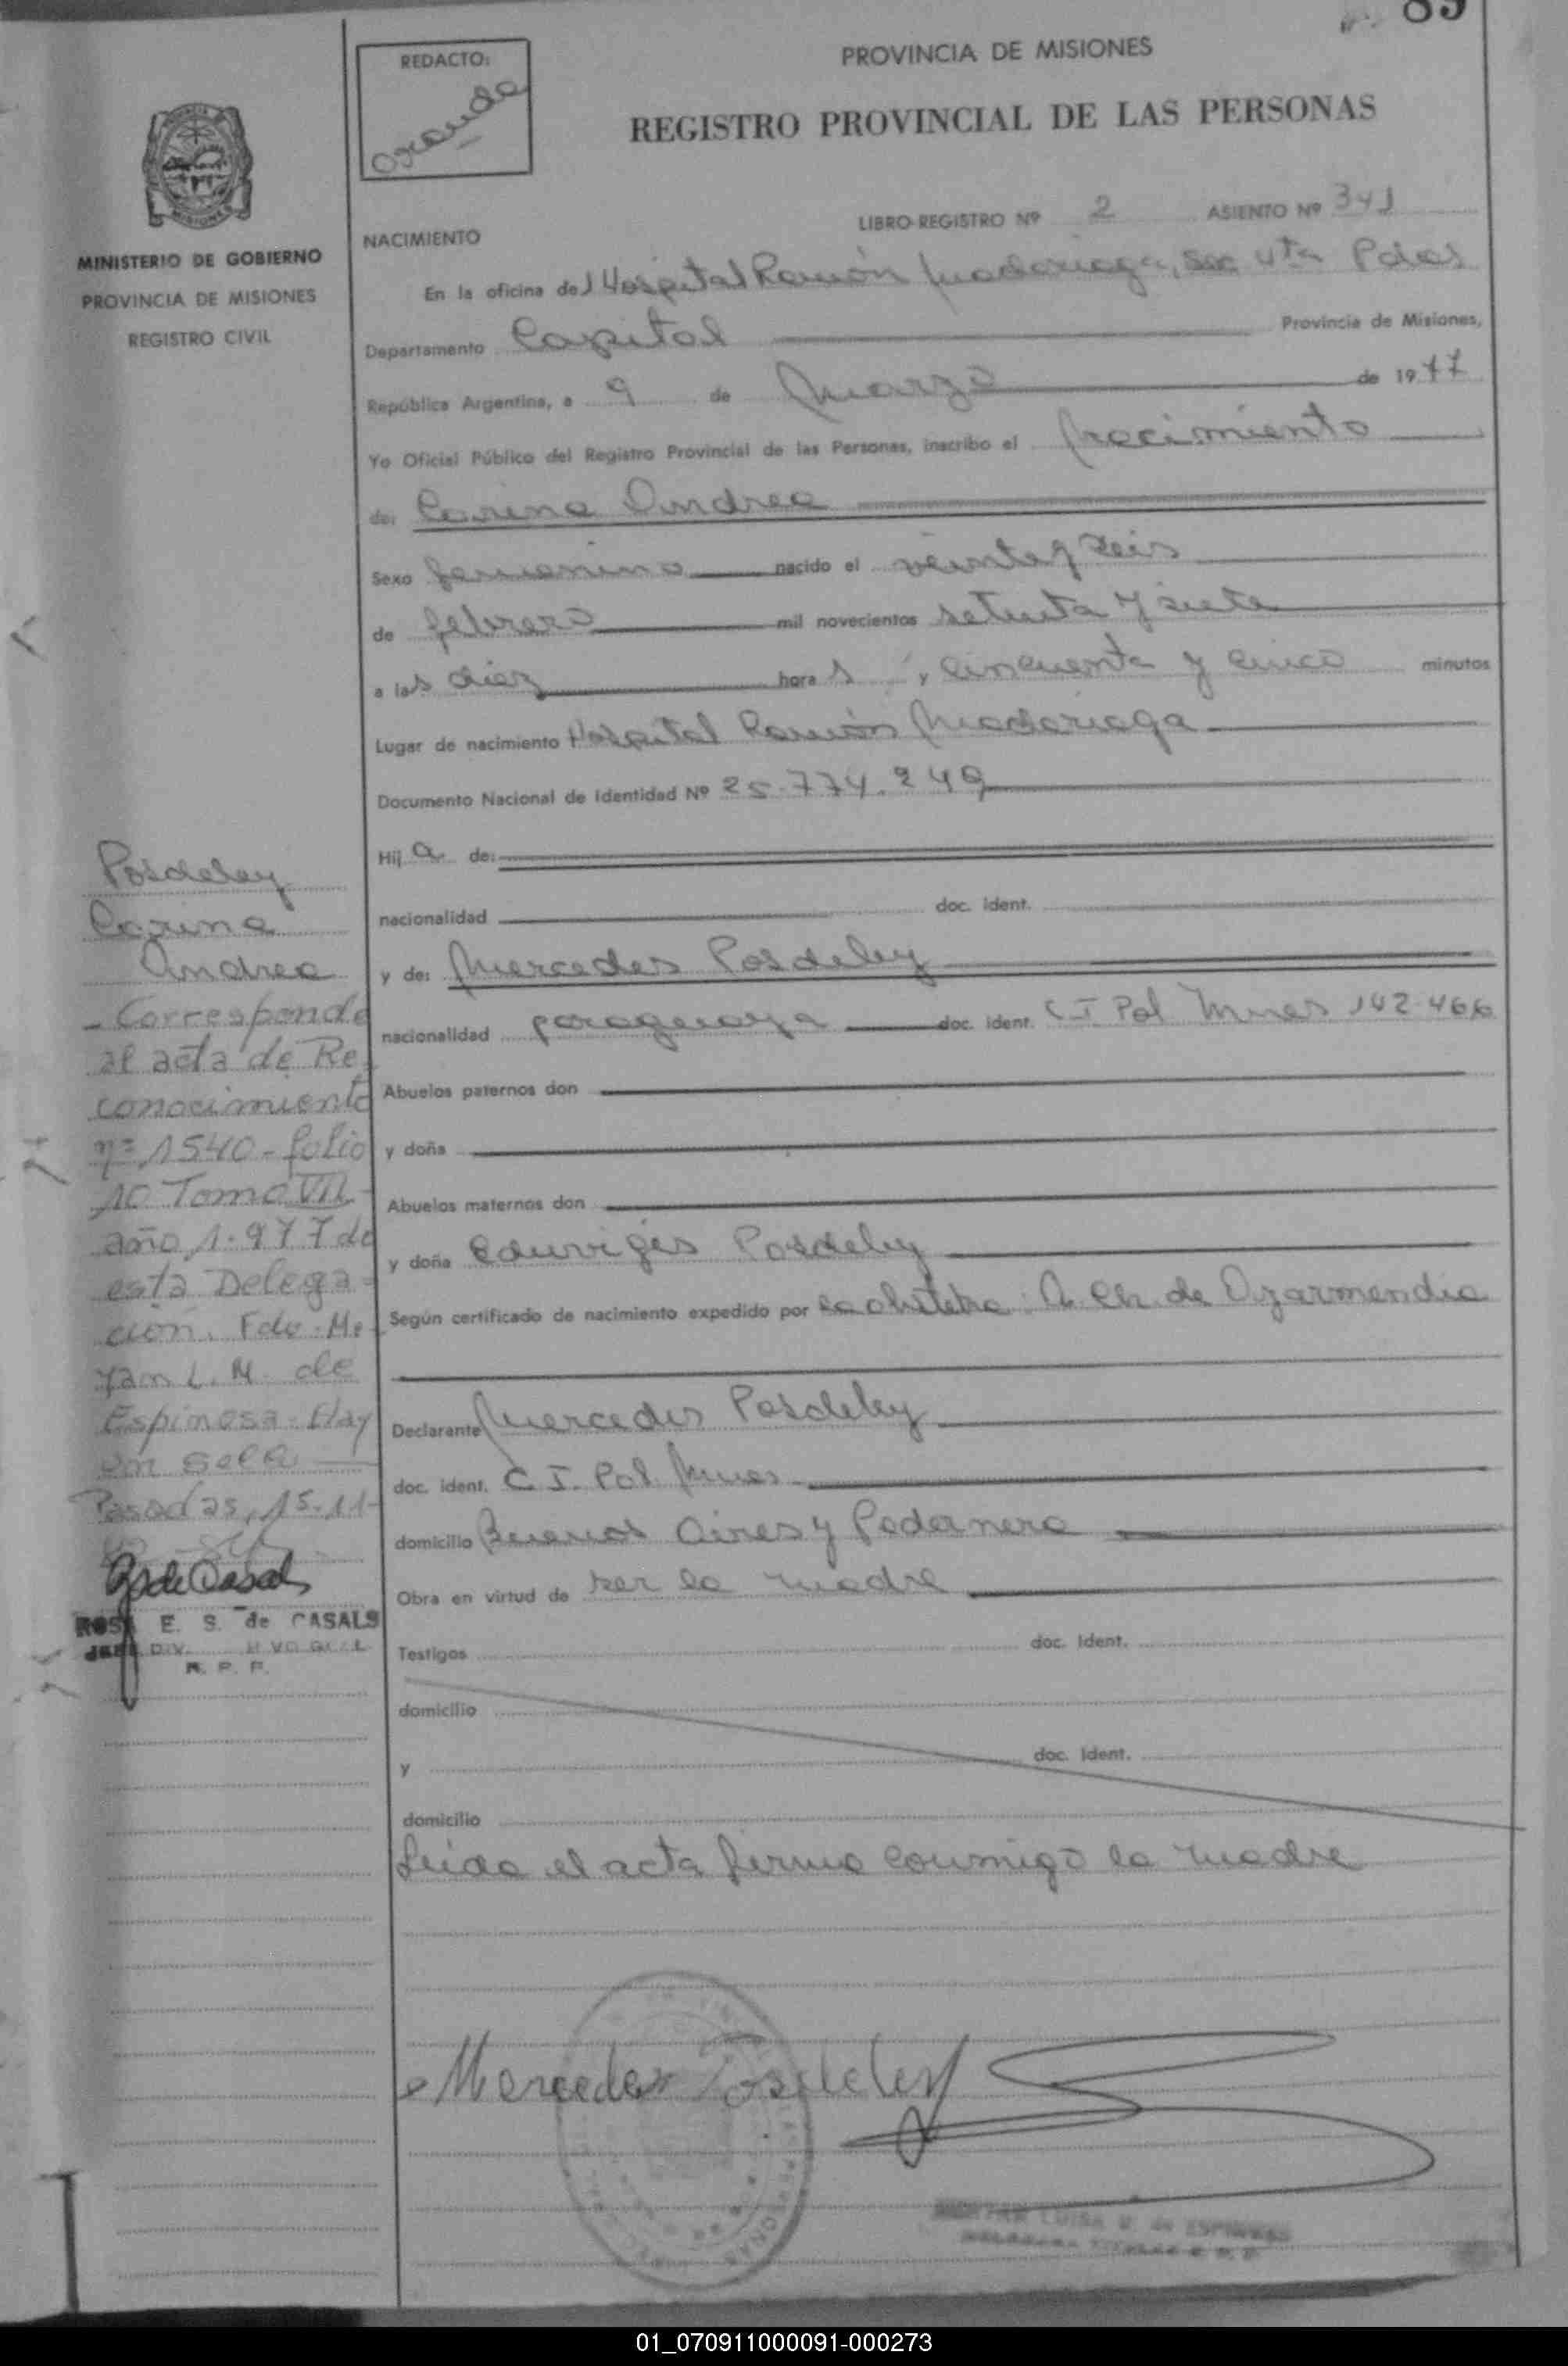 89
REDACTO:
PROVINCIA DE MISIONES
REGISTRO PROVINCIAL DE LAS PERSONAS
MINISTERIO DE GOBIERNO
PROVINCIA DE MISIONES
REGISTRO CIVIL
LIBRO-REGISTRO Nº 2 ASIENTO Nº 341
NACIMIENTO
En la oficina del Hospital Ramón Madariaga, Sec 4ta Pdas
Departamento Capital Provincia de Misiones,
República Argentina, a 9 de Marzo de 1977
Yo Oficial Público del Registro Provincial de las Personas, inscribo el Nacimiento
de: Carina Andrea
Sexo femenino nacido el veinte y seis
de febrero mil novecientos setenta y siete
a las diez hora s y cincuenta y cinco minutos
Lugar de nacimiento Hospital Ramón Madariaga
Documento Nacional de Identidad Nº 25.774.249
Hij a de:
nacionalidad doc. ident.
y de: Mercedes Posdeley
nacionalidad paraguaya doc. ident. C I Pol Mnes 142.466
Abuelos paternos don
y doña
Abuelos maternos don
y doña Eduviges Posdeley
Según certificado de nacimiento expedido por la obstetra: A. Ch. de Ozarmendia
Declarante Mercedes Posdeley
doc. ident. C. I. Pol Mnes
domicilio Buenos Aires y Pedernera
Obra en virtud de ser la madre
Testigos doc. Ident.
domicilio
y doc. Ident.
domicilio
Leida el acta firma conmigo la madre
Mercedes Posdeley
Posdeley
Carina
Andrea
- Corresponde
al acta de Re
conocimiento
nº 1540 - folio
10 Tomo VII
año 1.977 de
esta Delega-
ción. Fdo. Mi-
L. M. de
Espinosa - Hay
un sello
Posadas, 15-11-
ROSA E. S. de CASALS
R. P. P.
LUISA M. de ESPINOSA
01_070911000091-000273